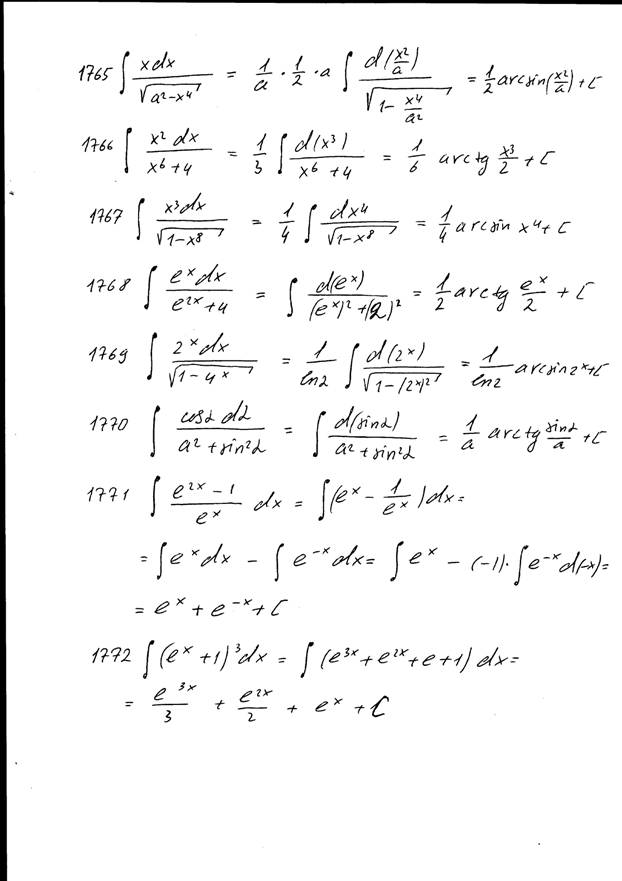 1765 ∫ xdx/√(a²−x⁴) = 1/a · 1/2 · a ∫ d(x²/a)/√(1−x⁴/a²) = 1/2 arcsin(x²/a) + C
1766 ∫ x² dx/(x⁶+4) = 1/3 ∫ d(x³)/(x⁶+4) = 1/6 arctg x³/2 + C
1767 ∫ x³dx/√(1−x⁸) = 1/4 ∫ dx⁴/√(1−x⁸) = 1/4 arcsin x⁴ + C
1768 ∫ eˣdx/(e²ˣ+4) = ∫ d(eˣ)/((eˣ)²+(2)²) = 1/2 arctg eˣ/2 + C
1769 ∫ 2ˣdx/√(1−4ˣ) = 1/ln2 ∫ d(2ˣ)/√(1−(2ˣ)²) = 1/ln2 arcsin 2ˣ + C
1770 ∫ cosα dα/(a²+sin²α) = ∫ d(sinα)/(a²+sin²α) = 1/a arctg sinα/a + C
1771 ∫ (e²ˣ−1)/eˣ dx = ∫(eˣ − 1/eˣ)dx =
= ∫eˣdx − ∫e⁻ˣdx = ∫eˣ − (−1)·∫e⁻ˣd(−x) =
= eˣ + e⁻ˣ + C
1772 ∫(eˣ+1)³dx = ∫(e³ˣ+e²ˣ+e+1)dx =
= e³ˣ/3 + e²ˣ/2 + eˣ + C